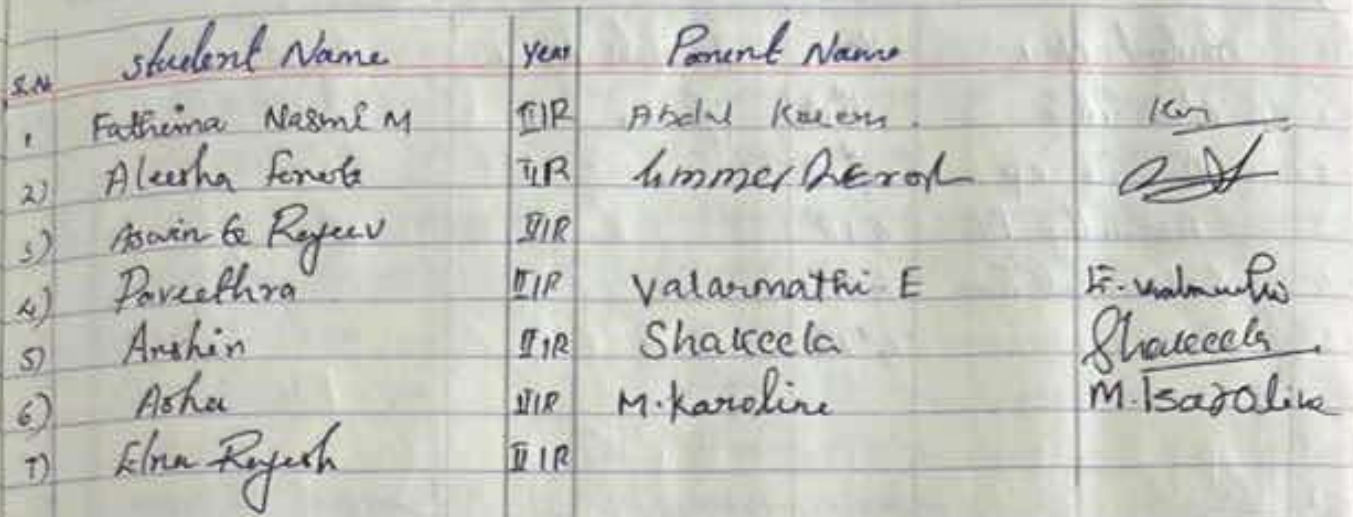 S.No Student Name Year Parent Name
1 Fathima Nasmi M II IR Abdul Kareem.
2) Aleesha II IR
3) Aswin G Rajeev II IR
4) Paveethra II IR Valarmathi E E. Valarmathi
5) Anshin II IR Shakeela Shakeela
6) Asha II IR M. Karoline M. Karoline
7) Elna Rajesh II IR